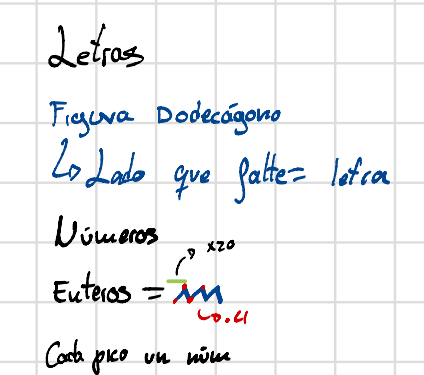 Letras
Figura Dodecágono
↳ Lado que falte = letra
Números
x20
Enteros =
Cada pico un núm